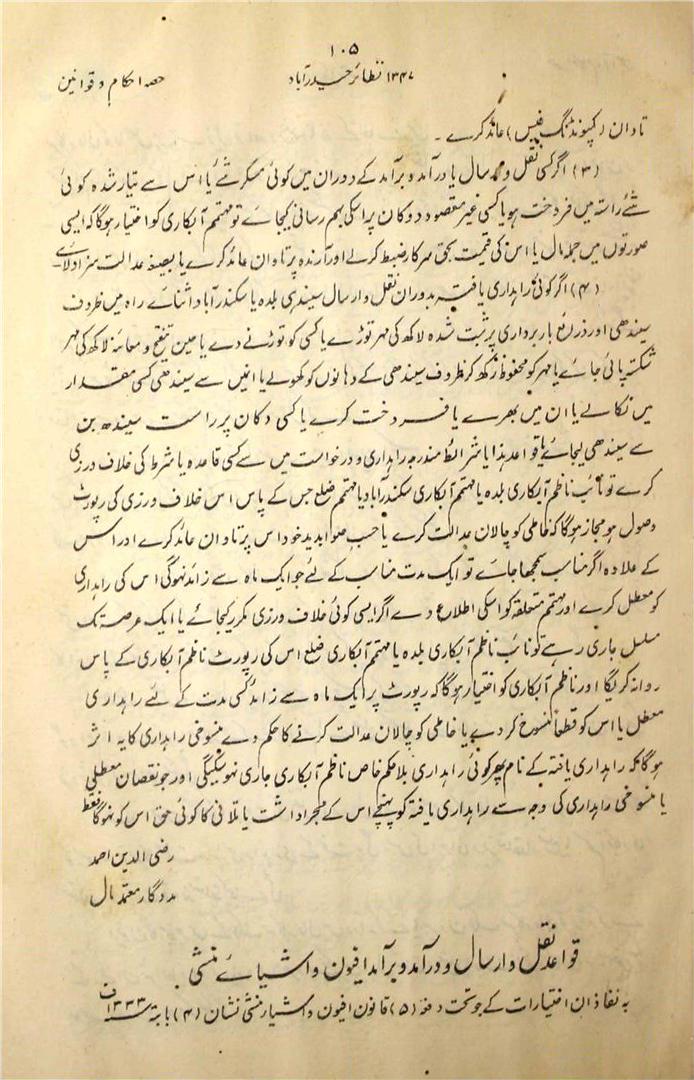 ۱۰۵
۱۳۴۷ نظائر حیدرآباد
حصہ احکام و قوانین
تاوان (کمپونڈنگ فیس) عائد کرے ۔
(۳) اگر کسی نقل و حمد سال یا درآمد و برآمد کے دوران میں کوئی مسکر شئے یا اس سے تیار شدہ کوئی
شئے راستہ میں فروخت ہو یا کسی غیر مقصود دوکان پر اسکی بہم رسانی کیجائے تو مہتمم آبکاری کو اختیار ہوگا کہ ایسی
صورتوں میں جملہ مال یا اس کی قیمت بحق سرکار ضبط کرلے اور آرندہ پر تاوان عائد کرے یا بصیغہ عدالت سزا دلائے
(۴) اگر کوئی راہداری یافتہ بدوران نقل و ارسال سیندھی بلدہ یا سکندرآباد اثنائے راہ میں ظروف
سیندھی اور ذرائع باربرداری پر ثبت شدہ لاکھ کی مہر توڑے یا کسی کو توڑنے دے یا حین تنقیح و معائنہ لاکھ کی مہر
شکستہ پائی جائے یا مہر کو محفوظ رکھ کر ظروف سیندھی کے دہانوں کو کھولے یا انیں سے سیندھی کسی مقدار
میں نکالے یا ان میں بھرے یا فروخت کرے یا کسی دکان پر راست سیندھ بن
سے سیندھی لیجائے یا قواعد ہذا یا شرائط مندرجہ راہداری و درخواست میں سے کسی قاعدہ یا شرط کی خلاف درزی
کرے تو نائب ناظم آبکاری بلدہ یا مہتمم آبکاری سکندرآباد یا مہتمم ضلع جس کے پاس اس خلاف ورزی کی رپورٹ
وصول ہو مجاز ہوگا کہ خاطی کو چالان عدالت کرے یا حسب صوابدید خود اس پر تاوان عائد کرے اور اس
کے علاوہ اگر مناسب سمجھا جائے تو ایک مدت مناسب کے لئے جو ایک ماہ سے زائد نہوگی اس کی راہداری
کو معطل کرے اور مہتمم متعلقہ کو اسکی اطلاع دے اگر ایسی کوئی خلاف ورزی مکرر کیجائے یا ایک عرصہ تک
مسلسل جاری رہے تو نائب ناظم آبکاری بلدہ یا مہتمم آبکاری ضلع اس کی رپورٹ ناظم آبکاری کے پاس
روانہ کریگا اور ناظم آبکاری کو اختیار ہوگا کہ رپورٹ پر ایک ماہ سے زائد کسی مدت کے لئے راہداری
معطل یا اس کو قطعاً منسوخ کردے یا خاطی کو چالان عدالت کرنے کا حکم دے منسوخی راہداری کا یہ اثر
ہوگا کہ راہداری یافتہ کے نام پھر کوئی راہداری بلا حکم خاص ناظم آبکاری جاری نہوسکیگی اور جو نقصان معطلی
یا منسوخی راہداری کی وجہ سے راہداری یافتہ کو پہنچے اس کے مجرا داشت یا تلافی کا کوئی حق اس کو نہوگا فقط
رضی الدین احمد
مددگار معتمد مال
قواعد نقل و ارسال و درآمد و برآمد افیون و اشیائے منشی
بہ نفاذ ان اختیارات کے جو تحت دفعہ (۵) قانون افیون و اشیار منشی نشان (۴) بابتہ ۱۳۳۳ ف